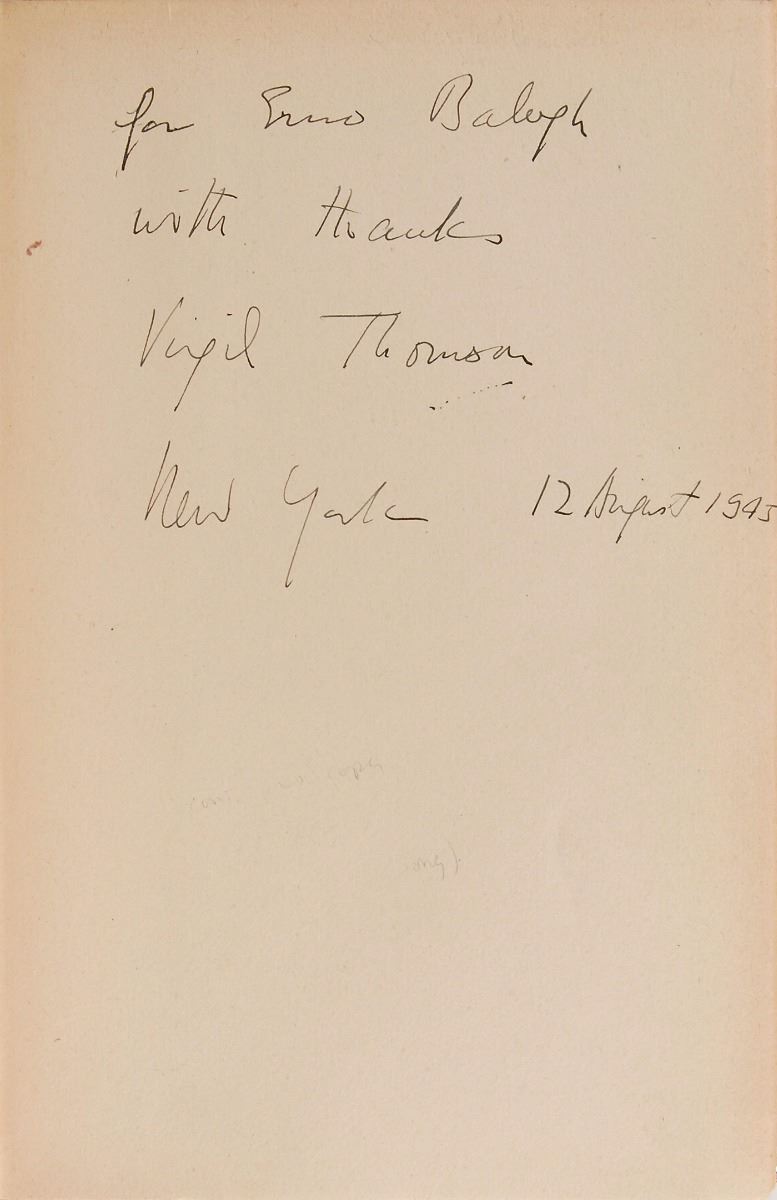 for Erno Balogh
with thanks
Virgil Thomson
New York 12 August 1945